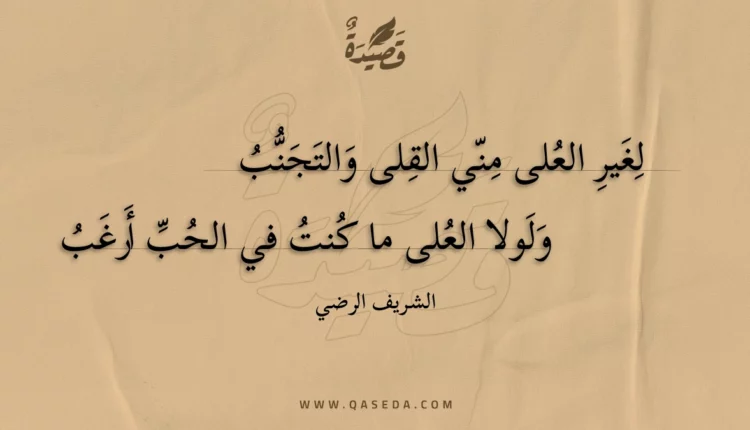 قَصِيْدَةٌ
لِغَيرِ العُلى مِنّي القِلى وَالتَجَنُّبُ
وَلَولا العُلى ما كُنتُ في الحُبِّ أَرغَبُ
الشريف الرضي
WWW.QASEDA.COM